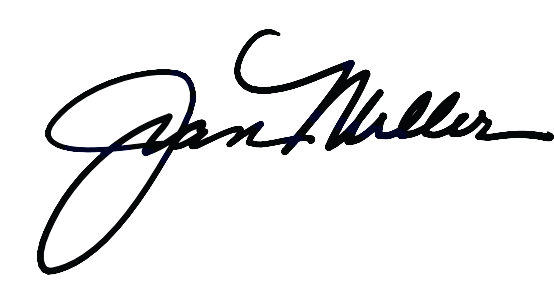 Jan Miller